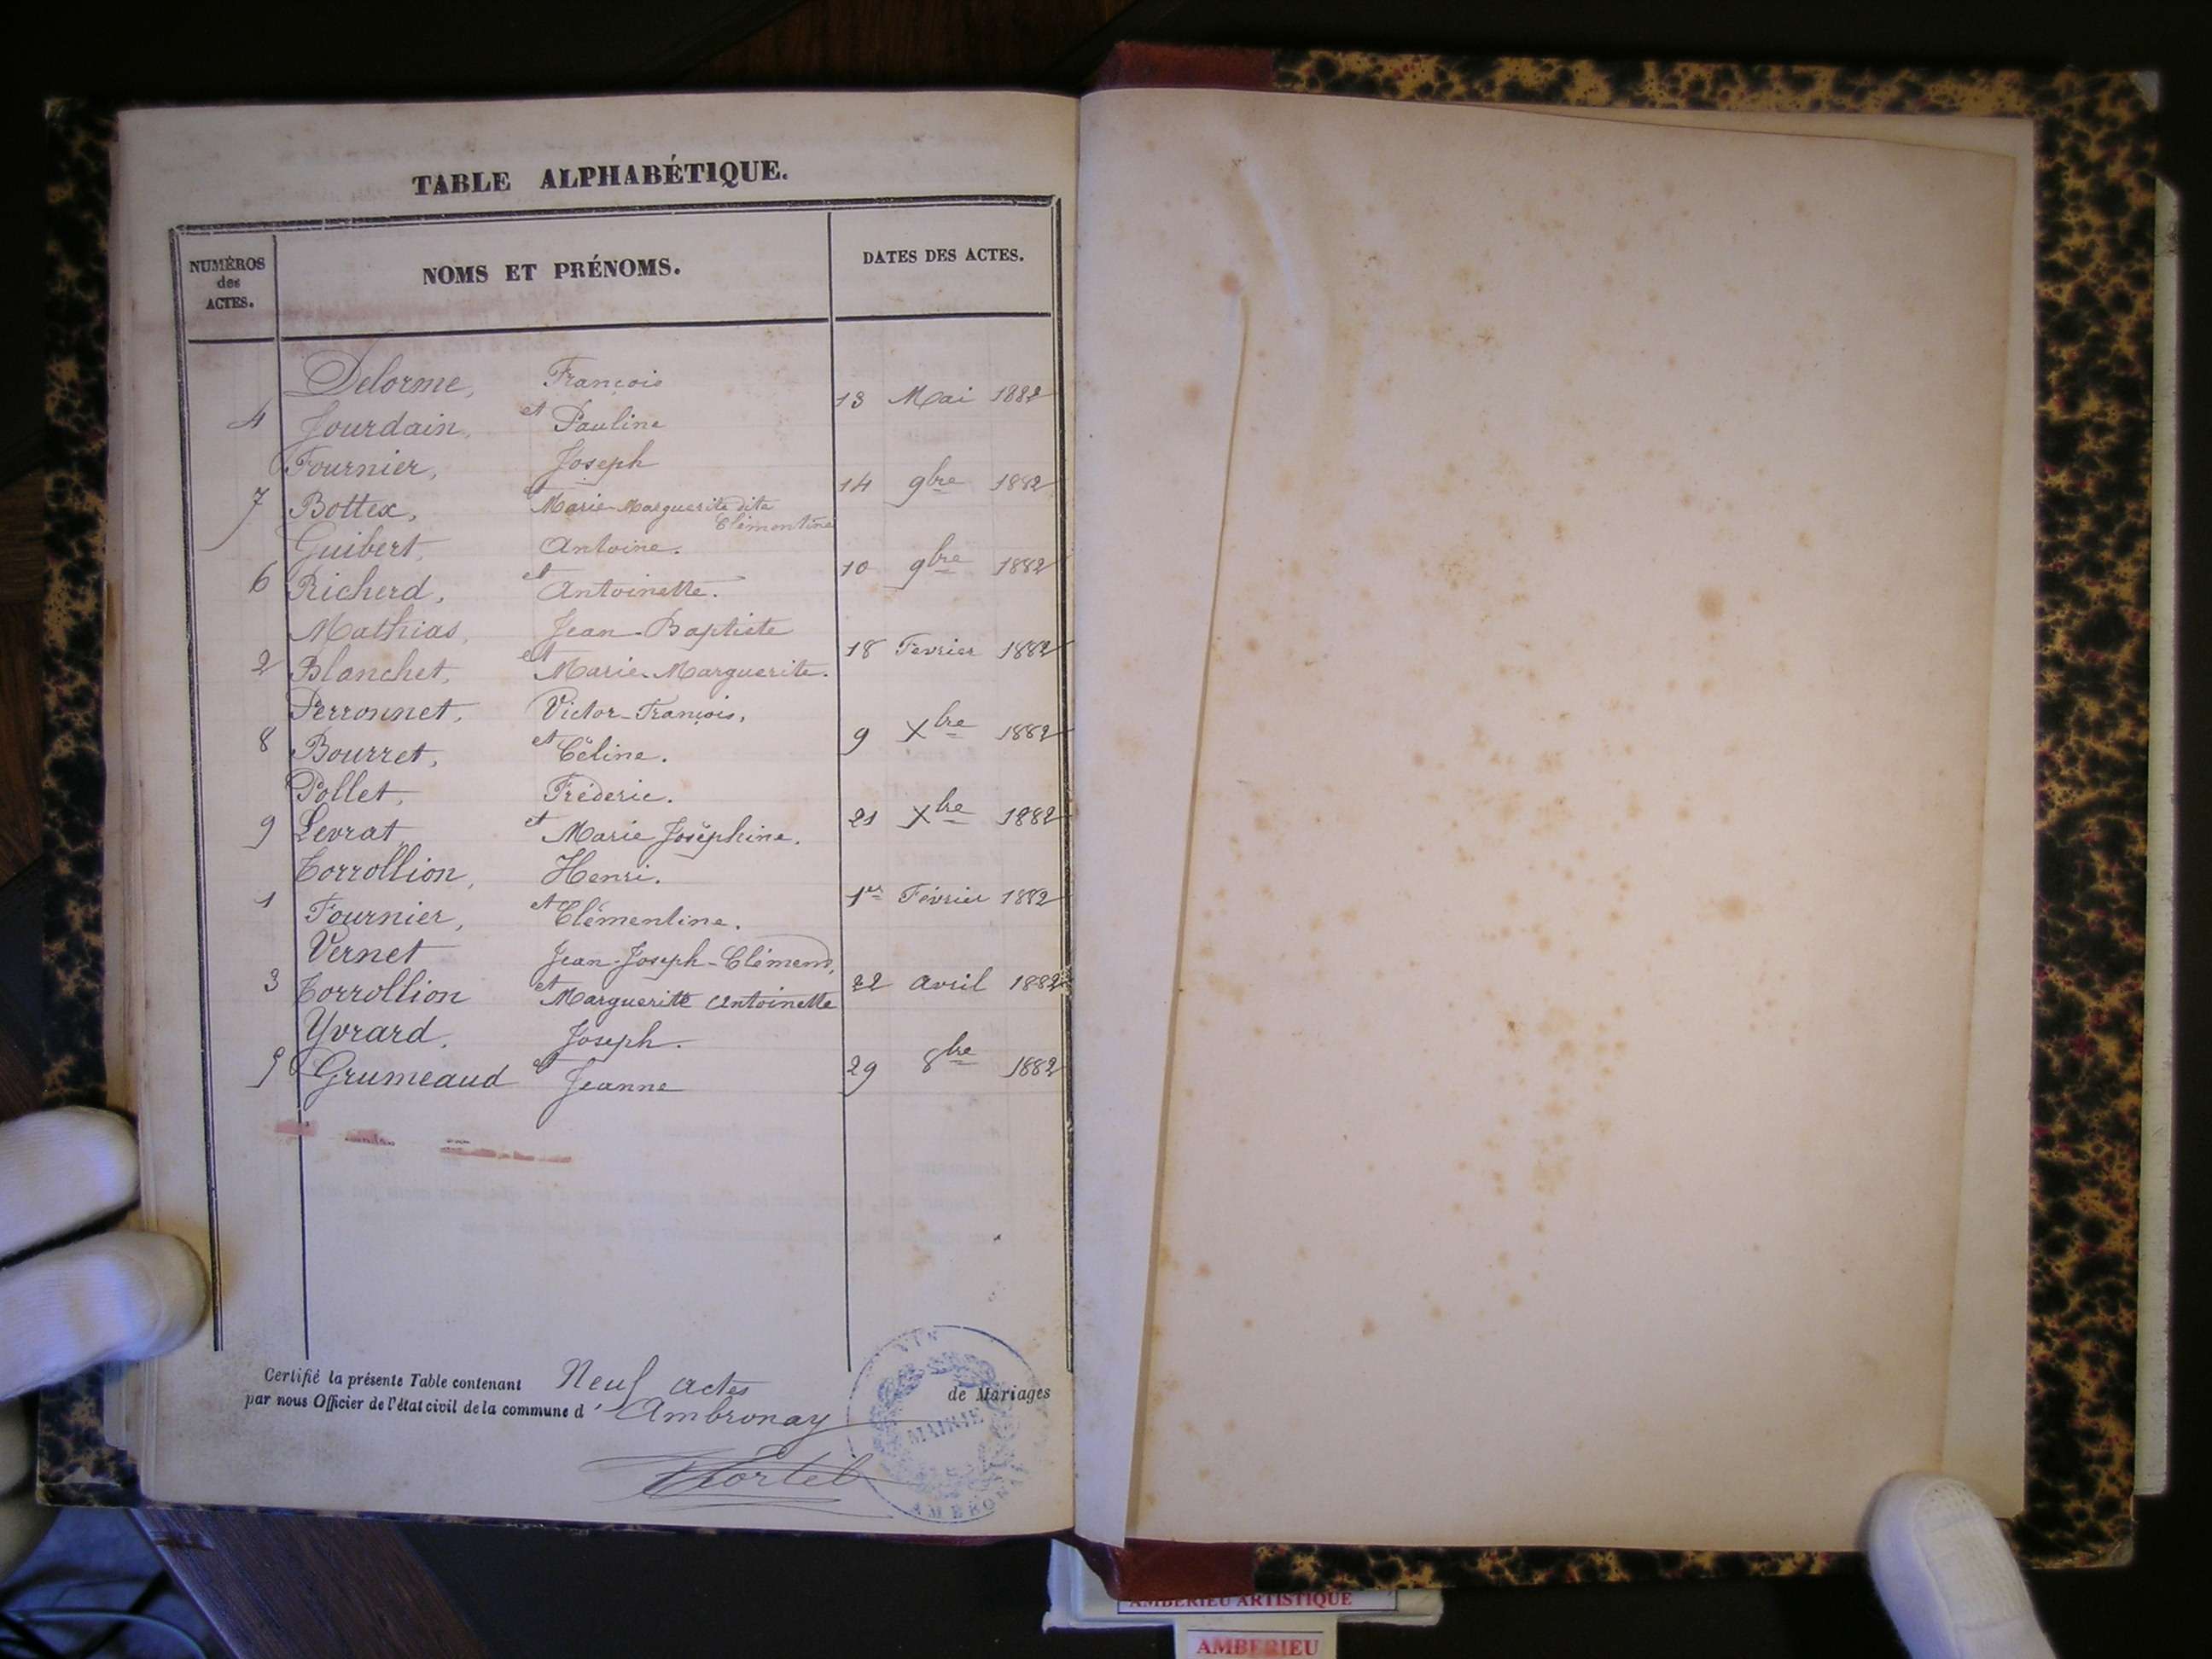 TABLE ALPHABÉTIQUE.
NUMÉROS
des
ACTES.
NOMS ET PRÉNOMS.
DATES DES ACTES.
Delorme, François
4 Jourdain, et Pauline 13 Mai 1882
Fournier, Joseph
7 Bottex, et Marie-Marguerite dite Clémentine 14 9bre 1882
Guibert, Antoine.
6 Richerd, et Antoinette. 10 9bre 1882
Mathias, Jean-Baptiste
2 Blanchet, et Marie-Marguerite. 18 Fevrier 1882
Perronnet, Victor-François,
8 Bourret, et Céline. 9 Xbre 1882
Pollet, Fréderic.
9 Levrat et Marie Joséphine. 21 Xbre 1882
Torrollion, Henri.
1 Fournier, et Clémentine. 1er Février 1882
Vernet Jean-Joseph-Clémend,
3 Torrollion et Marguerite Antoinette 22 avril 1882
Yvrard, Joseph.
5 Grumeaud et Jeanne 29 8bre 1882
Certifié la présente Table contenant Neuf actes de Mariages
par nous Officier de l'état civil de la commune d'Ambronay
MAIRIE
AMBERIEU ARTISTIQUE
AMBERIEU